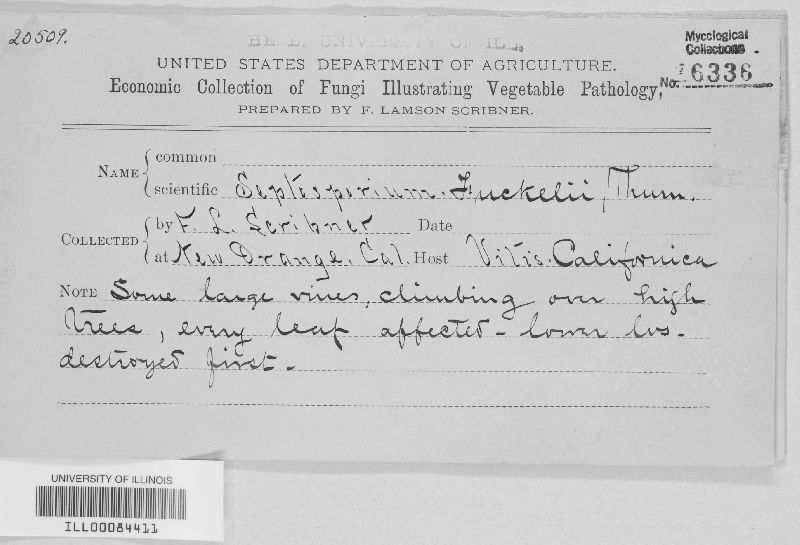 20509.
HERB. UNIVERSITY OF ILL.
Mycological
Collections
No. 16336
UNITED STATES DEPARTMENT OF AGRICULTURE.
Economic Collection of Fungi Illustrating Vegetable Pathology,
PREPARED BY F. LAMSON SCRIBNER.
NAME common
scientific Septosporium Fuckelii, Thum.
COLLECTED by F. L. Scribner Date
at New Orange, Cal. Host Vitis Californica
NOTE Some large vines, climbing over high
trees, every leaf affected - lower lvs.
destroyed first.
UNIVERSITY OF ILLINOIS
ILL00084411